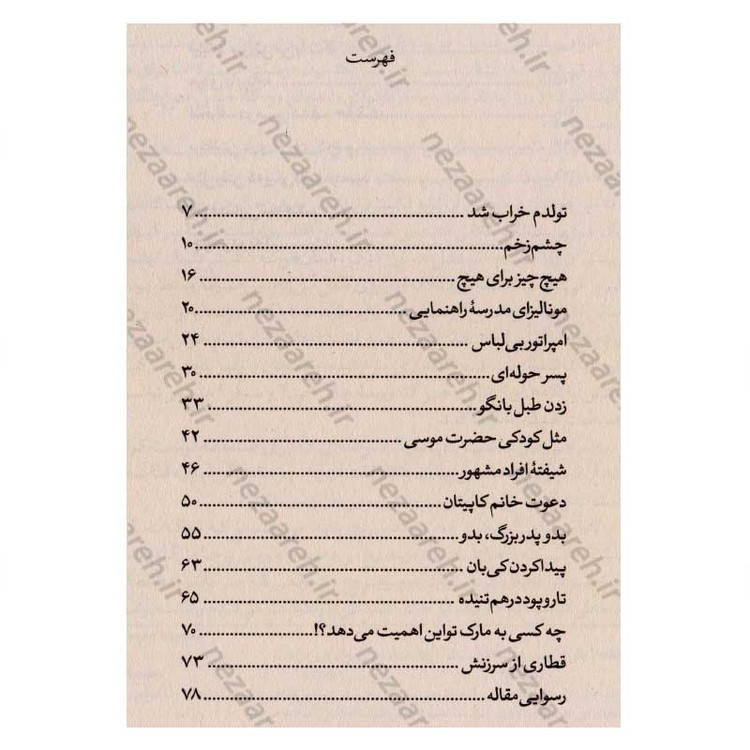 فهرست
تولدم خراب شد ........ ۷
چشم‌زخم ........ ۱۰
هیچ چیز برای هیچ ........ ۱۶
مونالیزای مدرسهٔ راهنمایی ........ ۲۰
امپراتور بی‌لباس ........ ۲۴
پسر حوله‌ای ........ ۳۰
زدن طبل بانگو ........ ۳۳
مثل کودکی حضرت موسی ........ ۴۲
شیفتهٔ افراد مشهور ........ ۴۶
دعوت خانم کاپیتان ........ ۵۰
بدو پدربزرگ، بدو ........ ۵۵
پیدا کردن کی‌بان ........ ۶۳
تاروپود درهم‌تنیده ........ ۶۵
چه کسی به مارک تواین اهمیت می‌دهد؟! ........ ۷۰
قطاری از سرزنش ........ ۷۳
رسوایی مقاله ........ ۷۸
nezaareh.ir